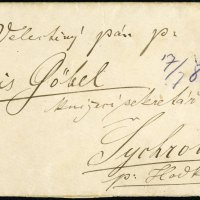 Velectěný pán p:
17/7 8
is Göbel
knížecí sekretář
Sychro
p: Hodk